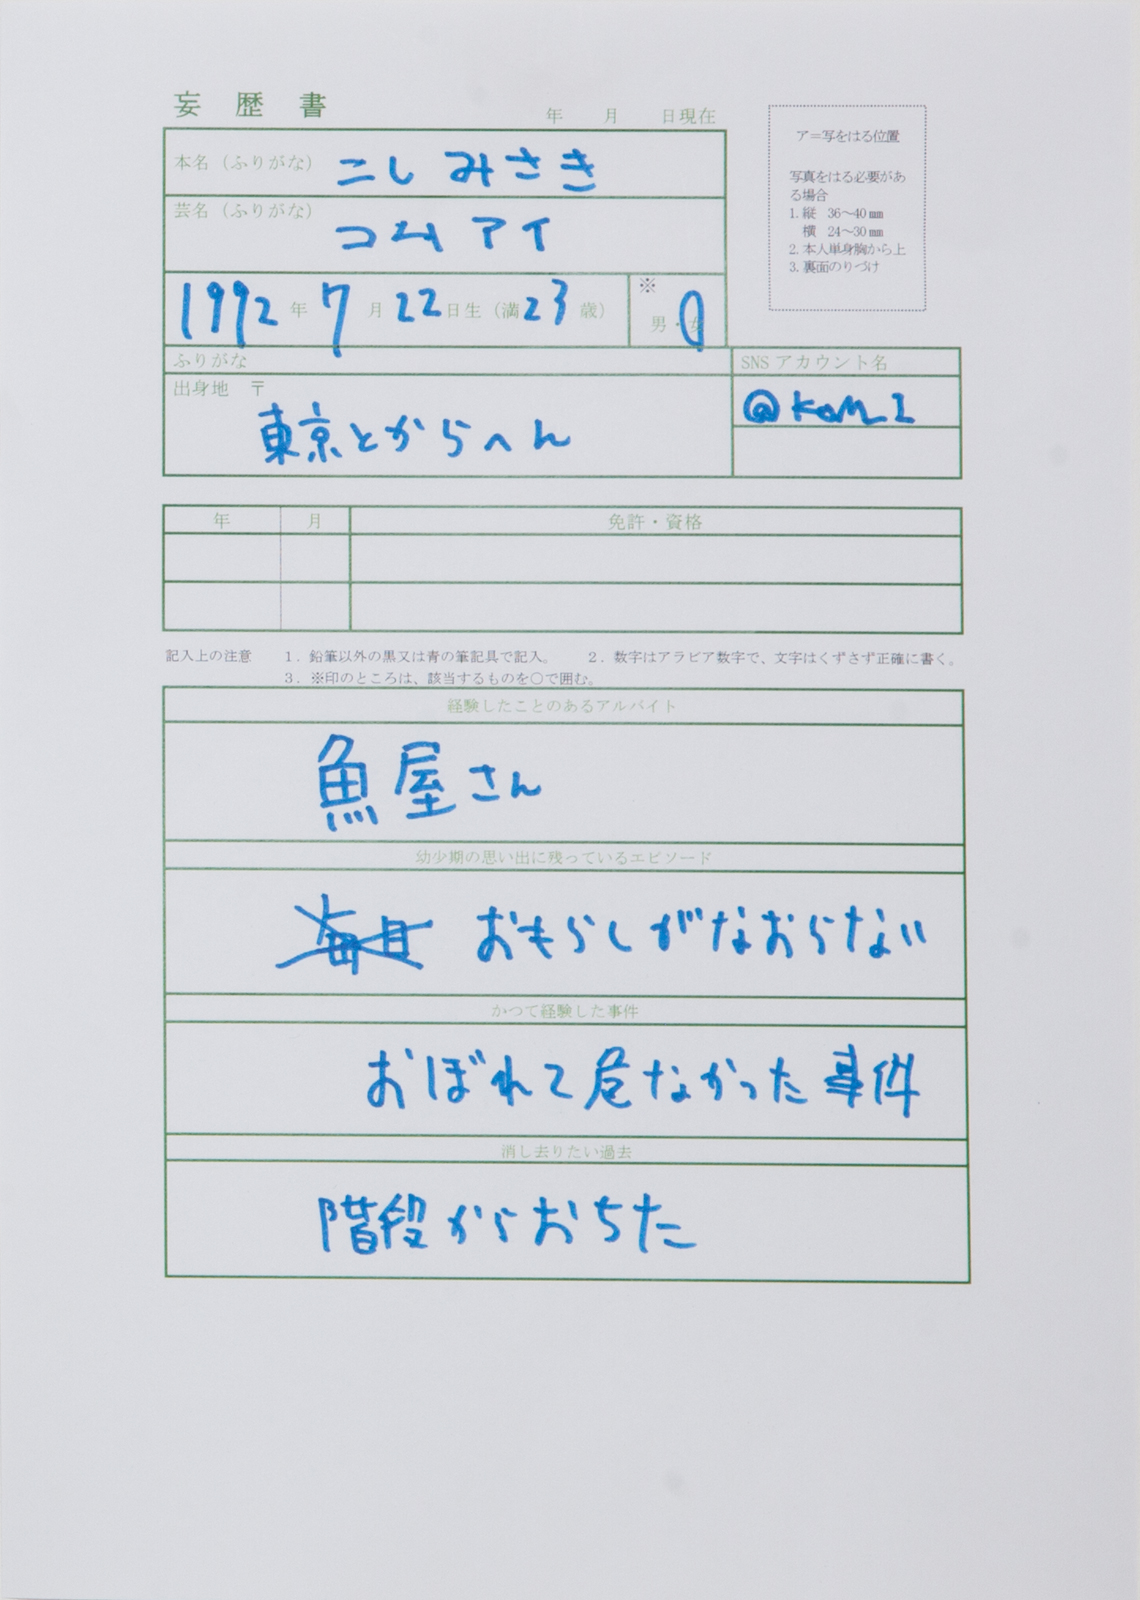 妄歴書
年 月 日現在
本名（ふりがな） こし みさき
芸名（ふりがな） コムアイ
1992年 7月 22日生（満23歳） ※ 男・女
ア＝写をはる位置
写真をはる必要があ
る場合
1. 縦 36～40㎜
横 24～30㎜
2. 本人単身胸から上
3. 裏面のりづけ
ふりがな
出身地 〒
東京とからへん
SNS アカウント名
@KOM_I
年 月 免許・資格
記入上の注意 1．鉛筆以外の黒又は青の筆記具で記入。 2．数字はアラビア数字で、文字はくずさず正確に書く。
3．※印のところは、該当するものを○で囲む。
経験したことのあるアルバイト
魚屋さん
幼少期の思い出に残っているエピソード
おもらしがなおらない
かつて経験した事件
おぼれて危なかった事件
消し去りたい過去
階段からおちた